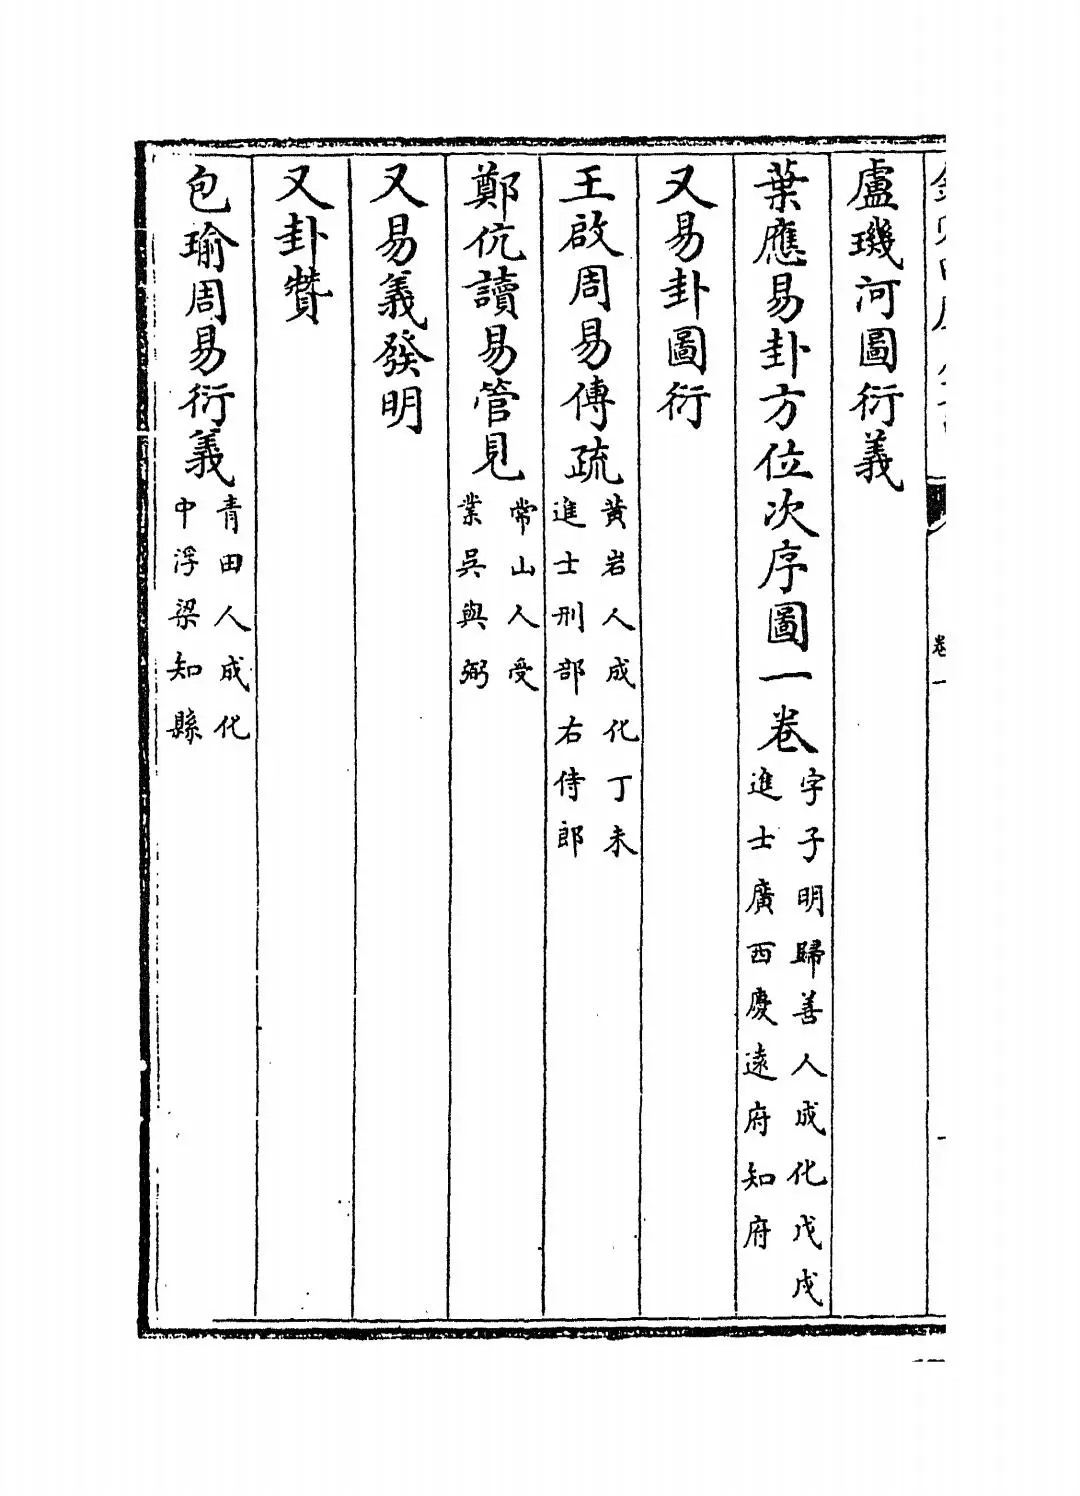 卷一
盧璣河圖衍義
葉應易卦方位次序圖一卷
字子明歸善人成化戊戌
進士廣西慶遠府知府
又易卦圖衍
王啟周易傳疏
黃岩人成化丁未
進士刑部右侍郎
鄭伉讀易管見
常山人受
業吳與弼
又易義發明
又卦贊
包瑜周易衍義
青田人成化
中浮梁知縣